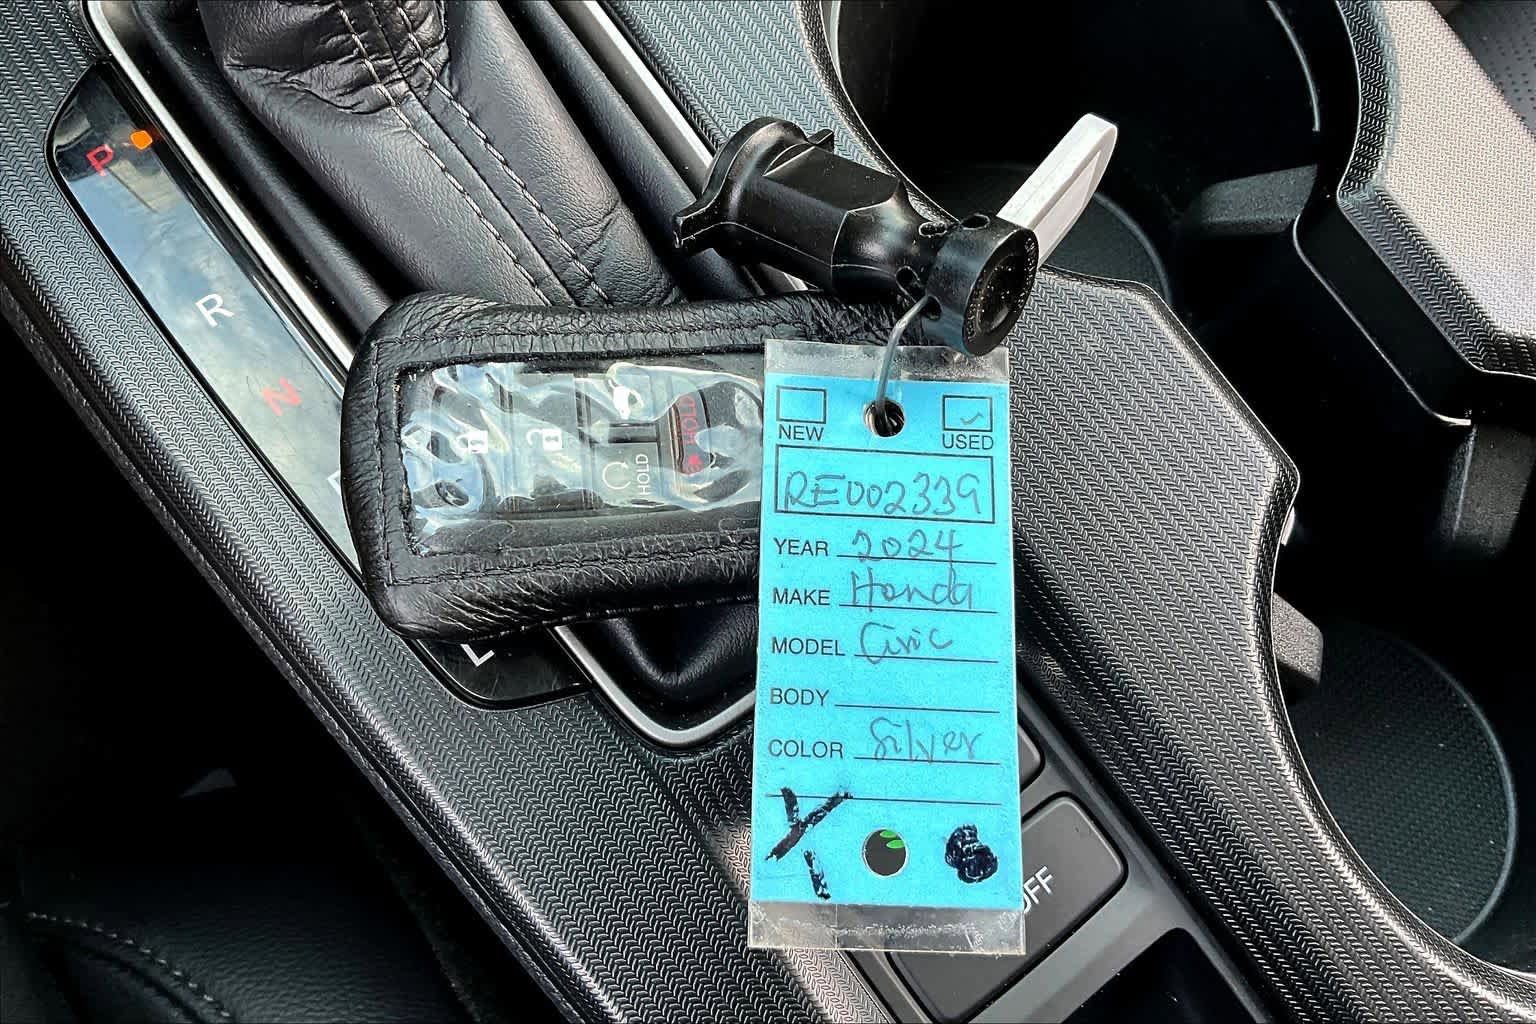 P
R
N
L
HOLD
HOLD
NEW USED
RE002339
YEAR 2024
MAKE Honda
MODEL Civic
BODY
COLOR Silver
OFF